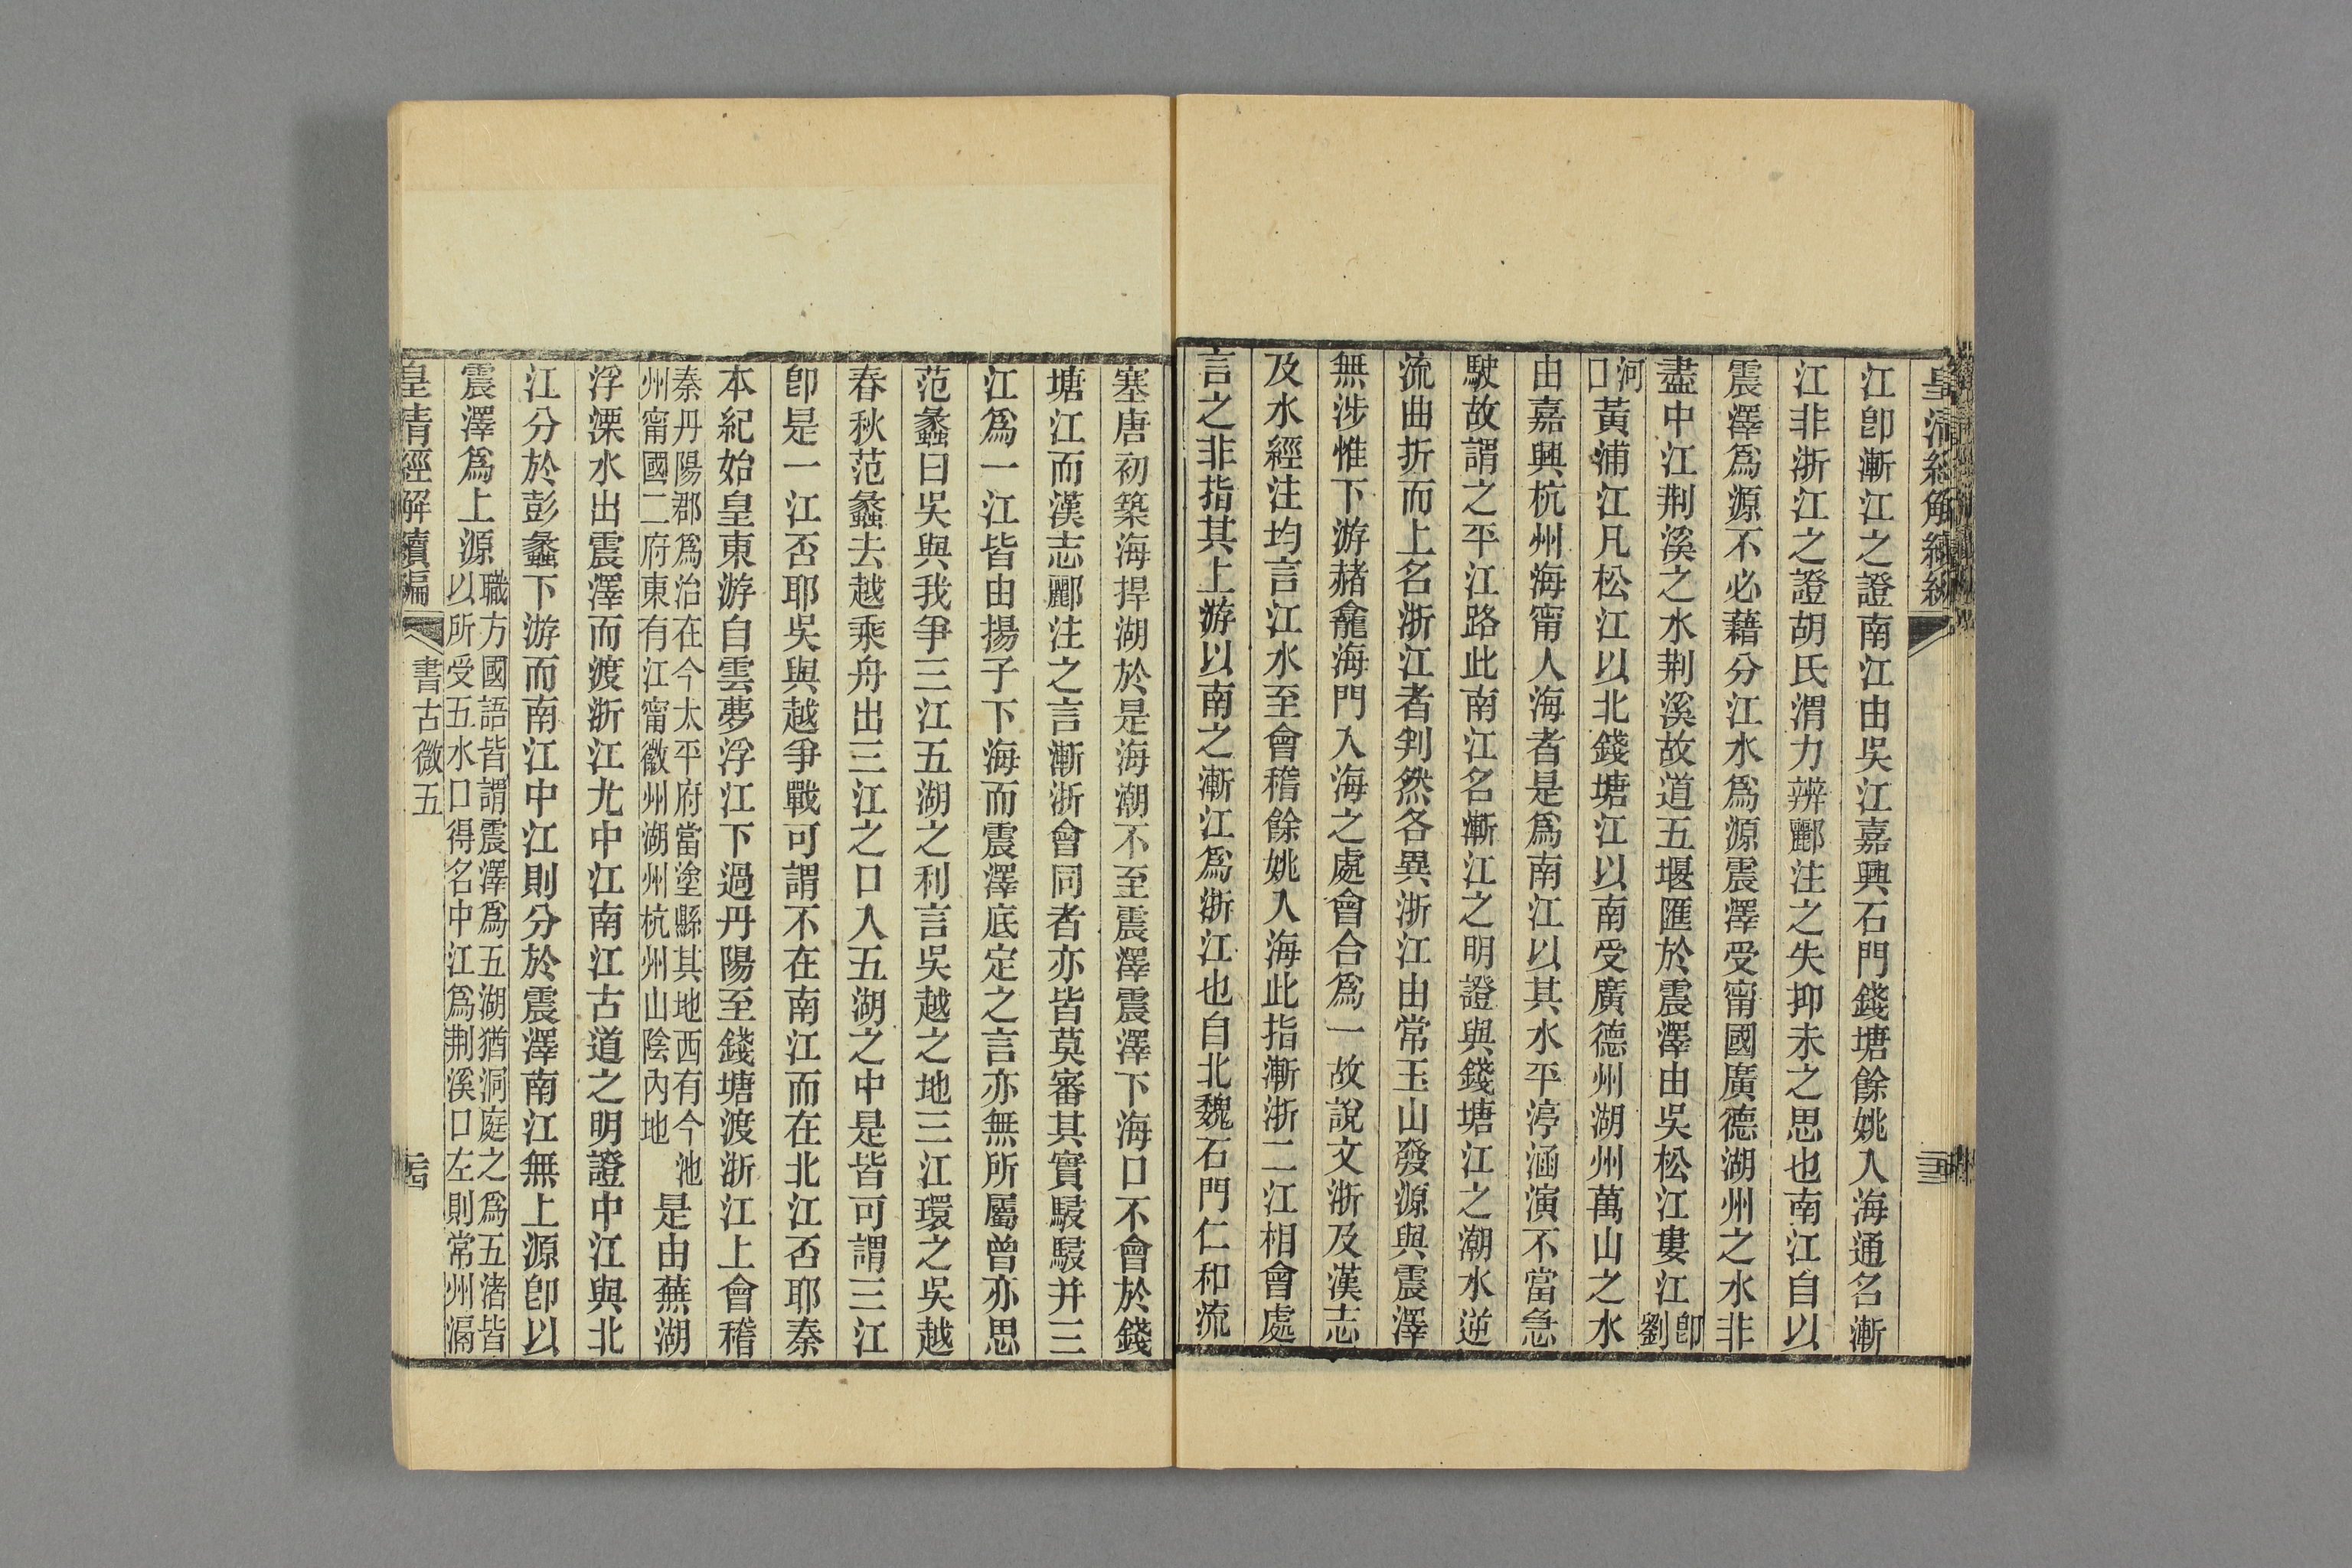 皇清經解續編
江卽漸江之證南江由吳江嘉興石門錢塘餘姚入海通名漸
江非浙江之證胡氏渭力辨酈注之失抑未之思也南江自以
震澤爲源不必藉分江水爲源震澤受甯國廣德湖州之水非
盡中江荆溪之水荆溪故道五堰匯於震澤由吳松江婁江卽劉
河口黃浦江凡松江以北錢塘江以南受廣德州湖州萬山之水
由嘉興杭州海甯入海者是爲南江以其水平渟涵演不當急
駛故謂之平江路此南江名漸江之明證與錢塘江之潮水逆
流曲折而上名浙江者判然各異浙江由常玉山發源與震澤
無涉惟下游赭龕海門入海之處會合爲一故說文浙及漢志
及水經注均言江水至會稽餘姚入海此指漸浙二江相會處
言之非指其上游以南之漸江爲浙江也自北魏石門仁和流
塞唐初築海捍湖於是海潮不至震澤震澤下海口不會於錢
塘江而漢志酈注之言漸浙會同者亦皆莫審其實駸駸并三
江爲一江皆由揚子下海而震澤底定之言亦無所屬曾亦思
范蠡曰吳與我爭三江五湖之利言吳越之地三江環之吳越
春秋范蠡去越乘舟出三江之口入五湖之中是皆可謂三江
卽是一江否耶吳與越爭戰可謂不在南江而在北江否耶秦
本紀始皇東游自雲夢浮江下過丹陽至錢塘渡浙江上會稽
秦丹陽郡爲治在今太平府當塗縣其地西有今池
州甯國二府東有江甯徽州湖州杭州山陰內地
是由蕪湖
浮溧水出震澤而渡浙江尤中江南江古道之明證中江與北
江分於彭蠡下游而南江中江則分於震澤南江無上源卽以
震澤爲上源
職方國語皆謂震澤爲五湖猶洞庭之爲五渚皆
以所受五水口得名中江爲荆溪口左則常州滆
皇清經解續編
書古微五